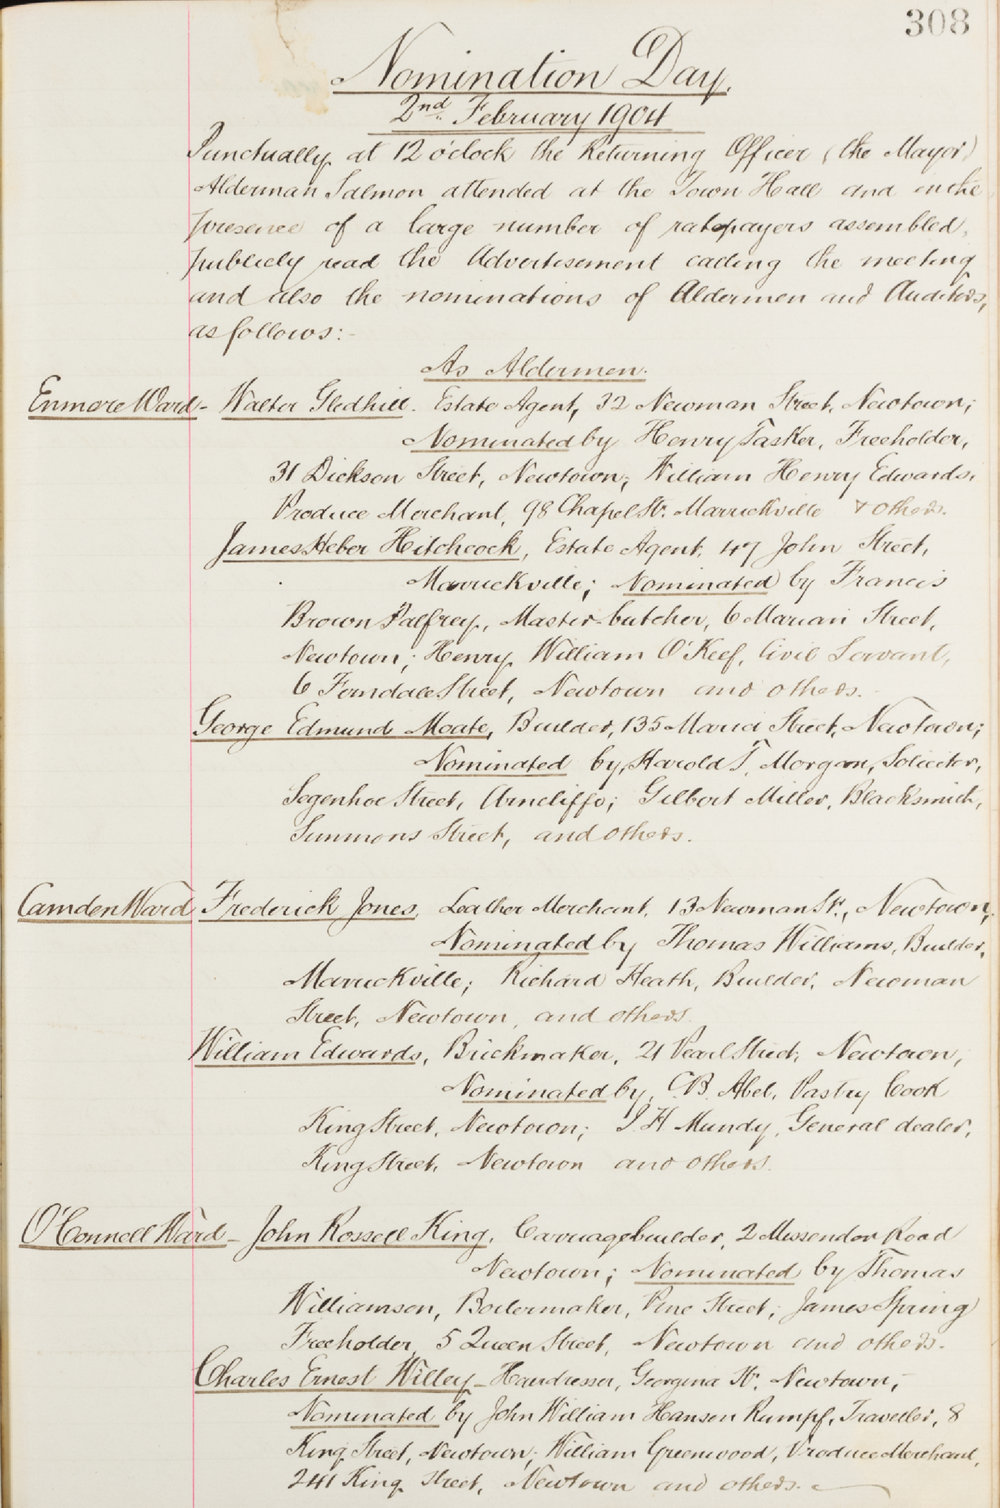 308
Nomination Day.
2nd. February 1904
Punctually at 12 o'clock the Returning Officer (the Mayor)
Alderman Salmon attended at the Town Hall and in the
presence of a large number of ratepayers assembled,
publicly read the Advertisement calling the meeting
and also the nominations of Aldermen and Auditors,
as follows:-
As Aldermen.
Enmore Ward - Walter Gledhill. Estate Agent, 32 Newman Street, Newtown;
Nominated by Henry Tasker, Freeholder,
31 Dickson Street, Newtown; William Henry Edwards,
Produce Merchant, 98 Chapel St. Marrickville & others.
James Heber Hitchcock, Estate Agent, 47 John Street,
Marrickville; Nominated by Francis
Brown Palfrey, Master-butcher, 6 Marian Street,
Newtown; Henry William O'Keef, Civil Servant,
6 Ferndale Street, Newtown and others.
George Edmund Moate, Builder, 135 Maria Street, Newtown;
Nominated by, Harold T. Morgan, Solicitor,
Segenhoe Street, Arncliffe; Gilbert Miller, Blacksmith,
Simmons Street, and others.
Camden Ward Frederick Jones, Leather Merchant, 13 Newman St., Newtown,
Nominated by Thomas Williams, Builder,
Marrickville; Richard Heath, Builder, Newman
Street, Newtown, and others.
William Edwards, Brickmaker, 21 Pearl Street, Newtown,
Nominated by, C.B. Abel, Pastry Cook
King Street, Newtown; J. H Mundy, General dealer,
King Street, Newtown and others.
O'Connell Ward - John Rossell King, Carriagebuilder, 2 Missenden Road
Newtown; Nominated by Thomas
Williamson, Boilermaker, Pine Street; James Spring
Freeholder, 5 Queen Street, Newtown and others.
Charles Ernest Willey - Hairdresser, Georgina St. Newtown;
Nominated by John William Hansen Rumpf, Traveller, 8
King Street, Newtown; William Greenwood, Produce Merchant,
241 King Street, Newtown and others.